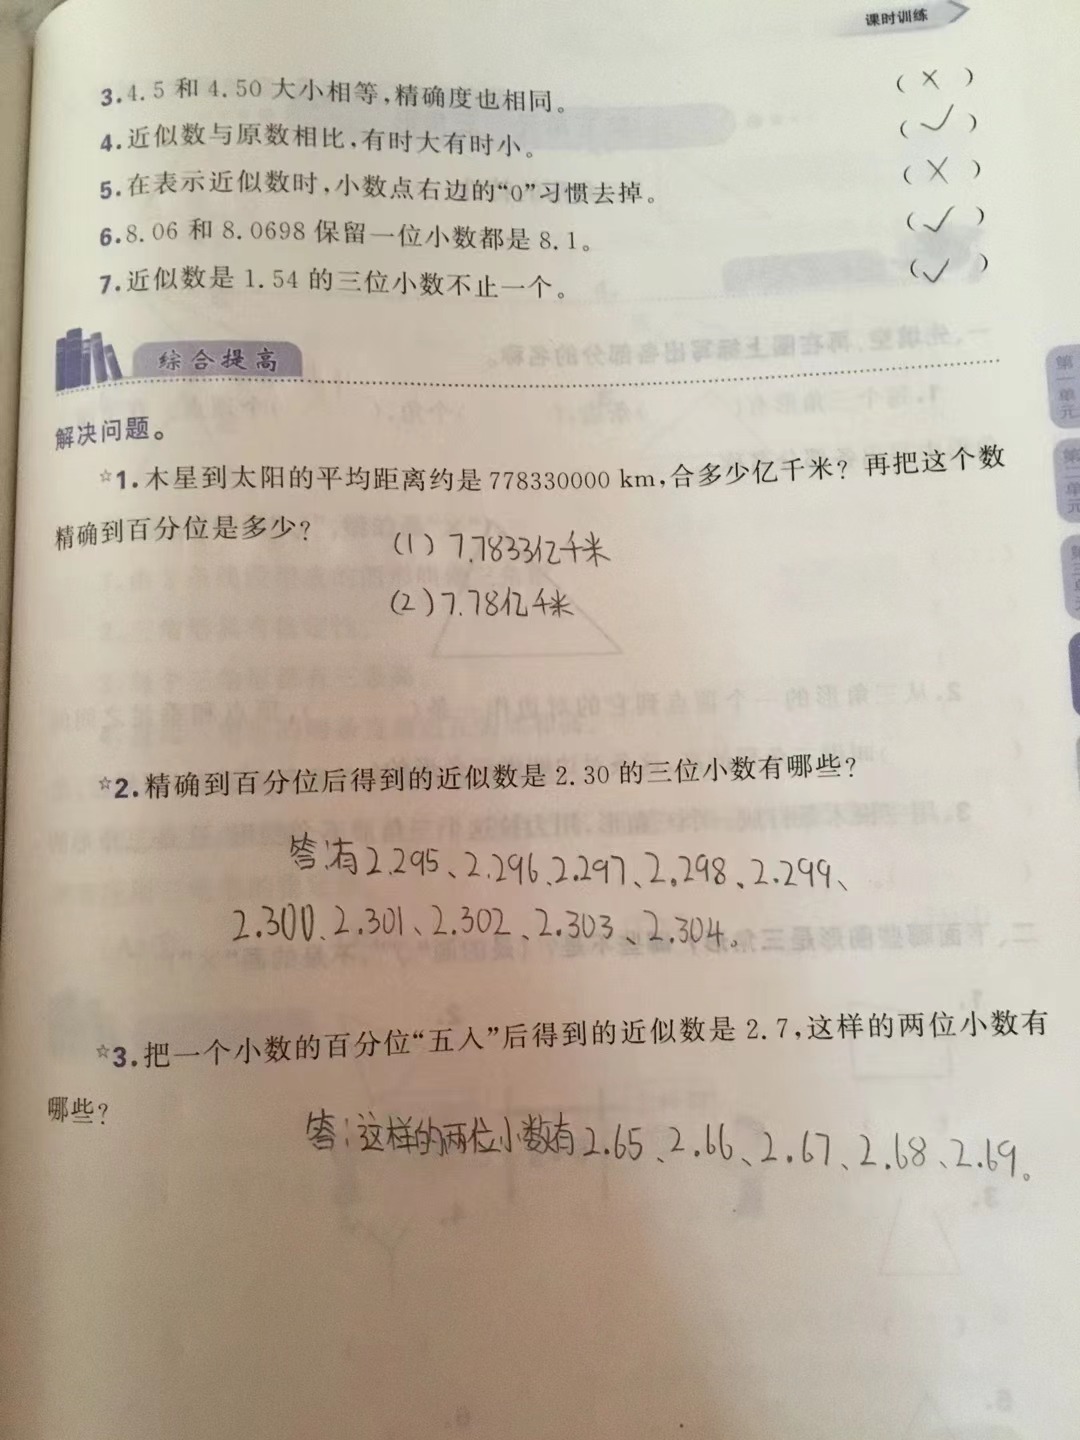 课时训练
3.4.5和4.50大小相等,精确度也相同。 (×)
4.近似数与原数相比,有时大有时小。 (✓)
5.在表示近似数时,小数点右边的“0”习惯去掉。 (×)
6.8.06和8.0698保留一位小数都是8.1。 (✓)
7.近似数是1.54的三位小数不止一个。 (✓)
综合提高
解决问题。
☆1.木星到太阳的平均距离约是778330000 km,合多少亿千米？再把这个数
精确到百分位是多少？
(1) 7.7833亿千米
(2) 7.78亿千米
☆2.精确到百分位后得到的近似数是2.30的三位小数有哪些？
答:有2.295、2.296、2.297、2.298、2.299、
2.300、2.301、2.302、2.303、2.304。
☆3.把一个小数的百分位“五入”后得到的近似数是2.7,这样的两位小数有
哪些？
答:这样的两位小数有2.65、2.66、2.67、2.68、2.69。
第一单元
第二单元
第三单元